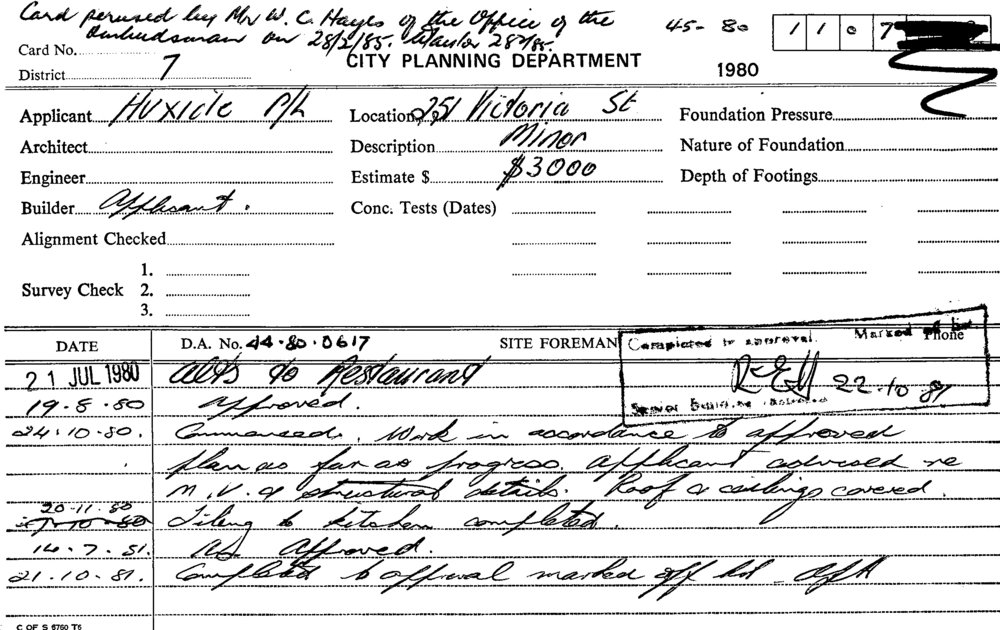 Card perused by Mr W. C. Hayes of the Office of the
Ombudsman on 28/2/85. 28/2/85.
45-80 1 1 0 7
Card No.
CITY PLANNING DEPARTMENT 1980
District 7
Applicant Huxicle P/L Location 251 Victoria St Foundation Pressure
Architect Description Minor Nature of Foundation
Engineer Estimate $ $3000 Depth of Footings
Builder Applicant. Conc. Tests (Dates)
Alignment Checked
1.
Survey Check 2.
3.
DATE D.A. No. 44·80·0617 SITE FOREMAN Phone
Completed to approval. Marked off list
22·10·81
Senior Building
21 JUL 1980 Alts to Restaurant
19·8·80 Approved.
24·10·80. Commenced. Work in accordance to approved
plan as far as progress. Applicant advised re
M.V. & structural details. Roof & ceilings covered.
20-11-80
7-10-80 Tiling to kitchen completed.
14·7·81. As Approved.
21·10·81. Completed to approval marked off list
C OF S 6760 T6